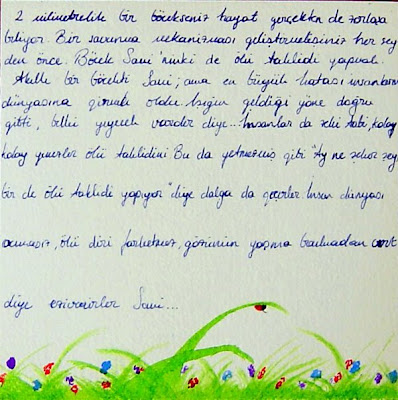 2 milimetrelik bir böcekseniz hayat gerçekten de zorlaşa
biliyor. Bir savunma mekanizması geliştirmelisiniz her şey
den önce. Böcek Sami'ninki de ölü taklidi yapmak.
Akıllı bir böcekti Sami; ama en büyük hatası insanların
dünyasına girmek oldu. Işığın geldiği yöne doğru
gitti, belki yiyecek vardır diye... İnsanlar da zeki tabi, kolay
kolay yemezler ölü taklidini. Bu da yetmezmiş gibi "Ay ne şeker şey
bir de ölü taklidi yapıyor" diye dalga da geçerler. İnsan dünyası
acımasız, ölü diri farketmez, gözünün yaşına bakmadan cart
diye eziverirler Sami...